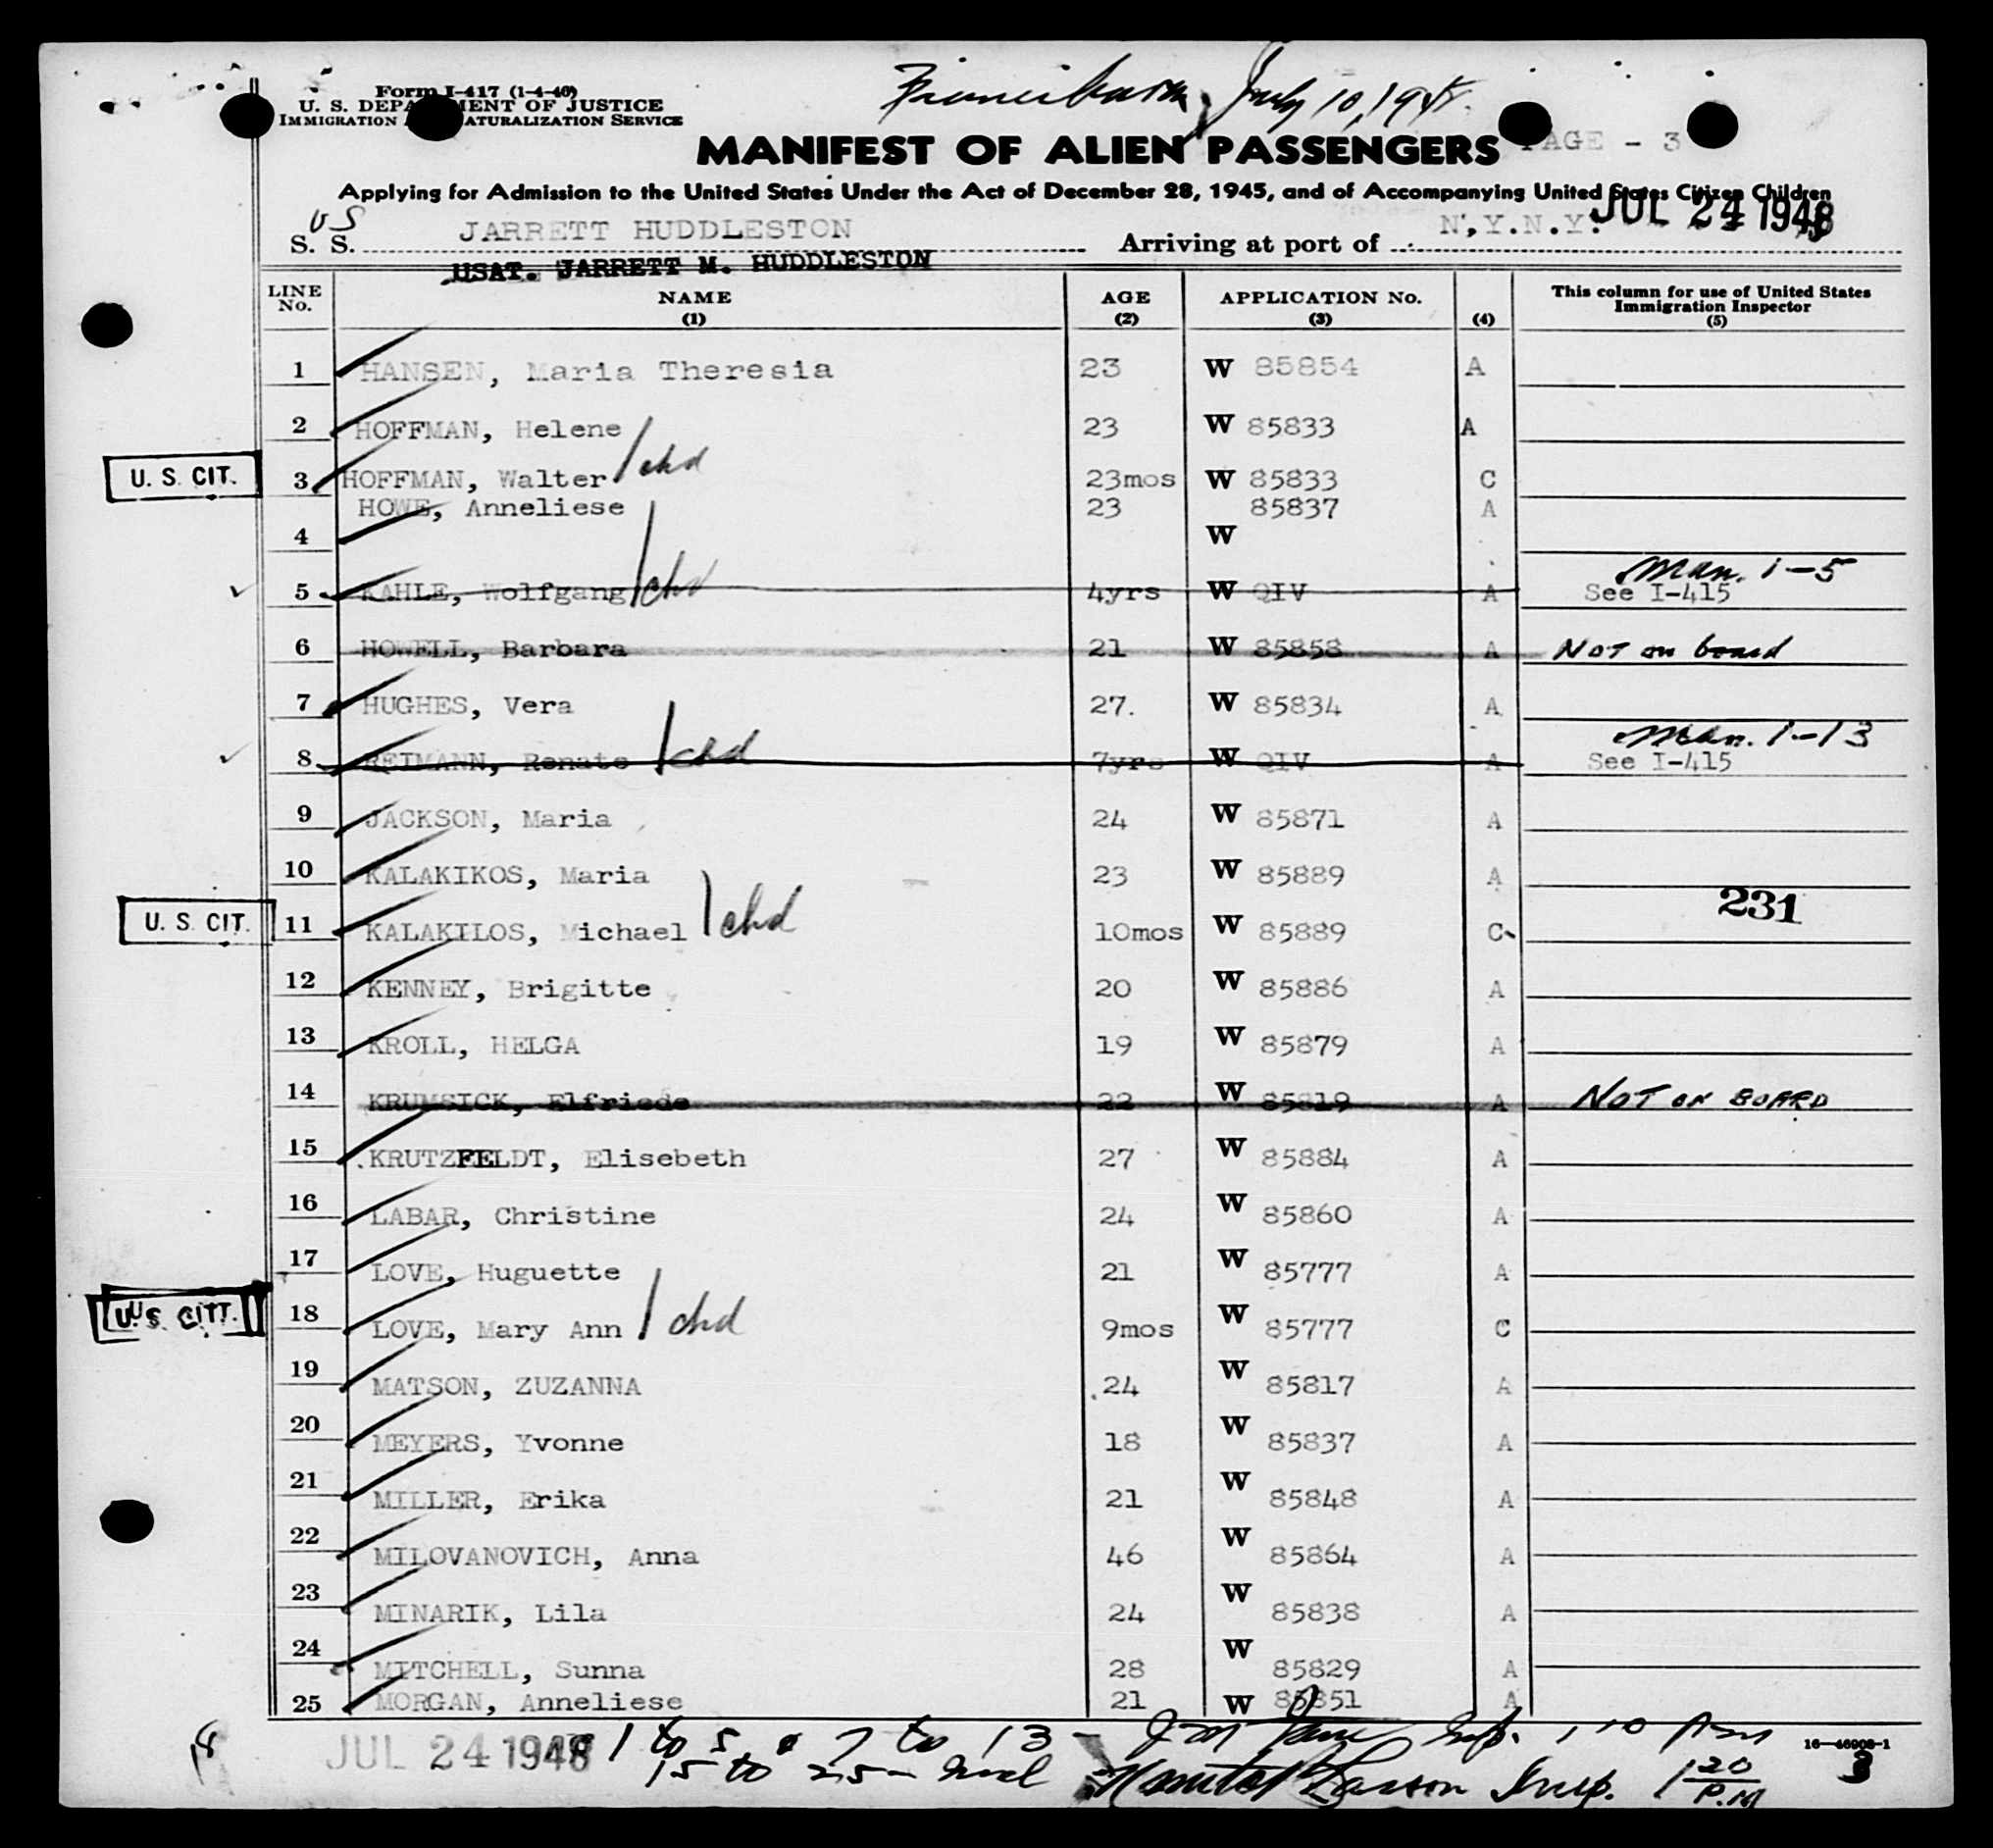 Form I-417 (1-4-46)
U. S. DEPARTMENT OF JUSTICE
IMMIGRATION NATURALIZATION SERVICE
July 10, 1948
MANIFEST OF ALIEN PASSENGERS PAGE - 3
Applying for Admission to the United States Under the Act of December 28, 1945, and of Accompanying United States Citizen Children
US
S. S. JARRETT HUDDLESTON Arriving at port of N.Y.N.Y. JUL 24 1948
USAT. JARRETT M. HUDDLESTON
LINE No. NAME (1) AGE (2) APPLICATION No. (3) (4) This column for use of United States Immigration Inspector (5)
1 HANSEN, Maria Theresia 23 W 85854 A
2 HOFFMAN, Helene 23 W 85833 A
U. S. CIT. 3 HOFFMAN, Walter / chd 23mos W 85833 C
4 HOWE, Anneliese 23 W 85837 A
Man. 1-5
5 KAHLE, Wolfgang / chd 4yrs W QIV A See I-415
6 HOWELL, Barbara 21 W 85858 A Not on board
7 HUGHES, Vera 27. W 85834 A
Man. 1-13
8 REIMANN, Renate / chd 7yrs W QIV A See I-415
9 JACKSON, Maria 24 W 85871 A
10 KALAKIKOS, Maria 23 W 85889 A
231
U. S. CIT. 11 KALAKILOS, Michael / chd 10mos W 85889 C
12 KENNEY, Brigitte 20 W 85886 A
13 KROLL, HELGA 19 W 85879 A
14 KRUMSICK, Elfriede 22 W 85819 A NOT ON BOARD
15 KRUTZFELDT, Elisebeth 27 W 85884 A
16 LABAR, Christine 24 W 85860 A
17 LOVE, Huguette 21 W 85777 A
U.S. CIT. 18 LOVE, Mary Ann / chd 9mos W 85777 C
19 MATSON, ZUZANNA 24 W 85817 A
20 MEYERS, Yvonne 18 W 85837 A
21 MILLER, Erika 21 W 85848 A
22 MILOVANOVICH, Anna 46 W 85864 A
23 MINARIK, Lila 24 W 85838 A
24 MITCHELL, Sunna 28 W 85829 A
25 MORGAN, Anneliese 21 W 85851 A
JUL 24 1948 1 to 5, 7 to 13 - Insp.
15 to 25 - incl Insp. 1 20 P.M
16-46908-1
3